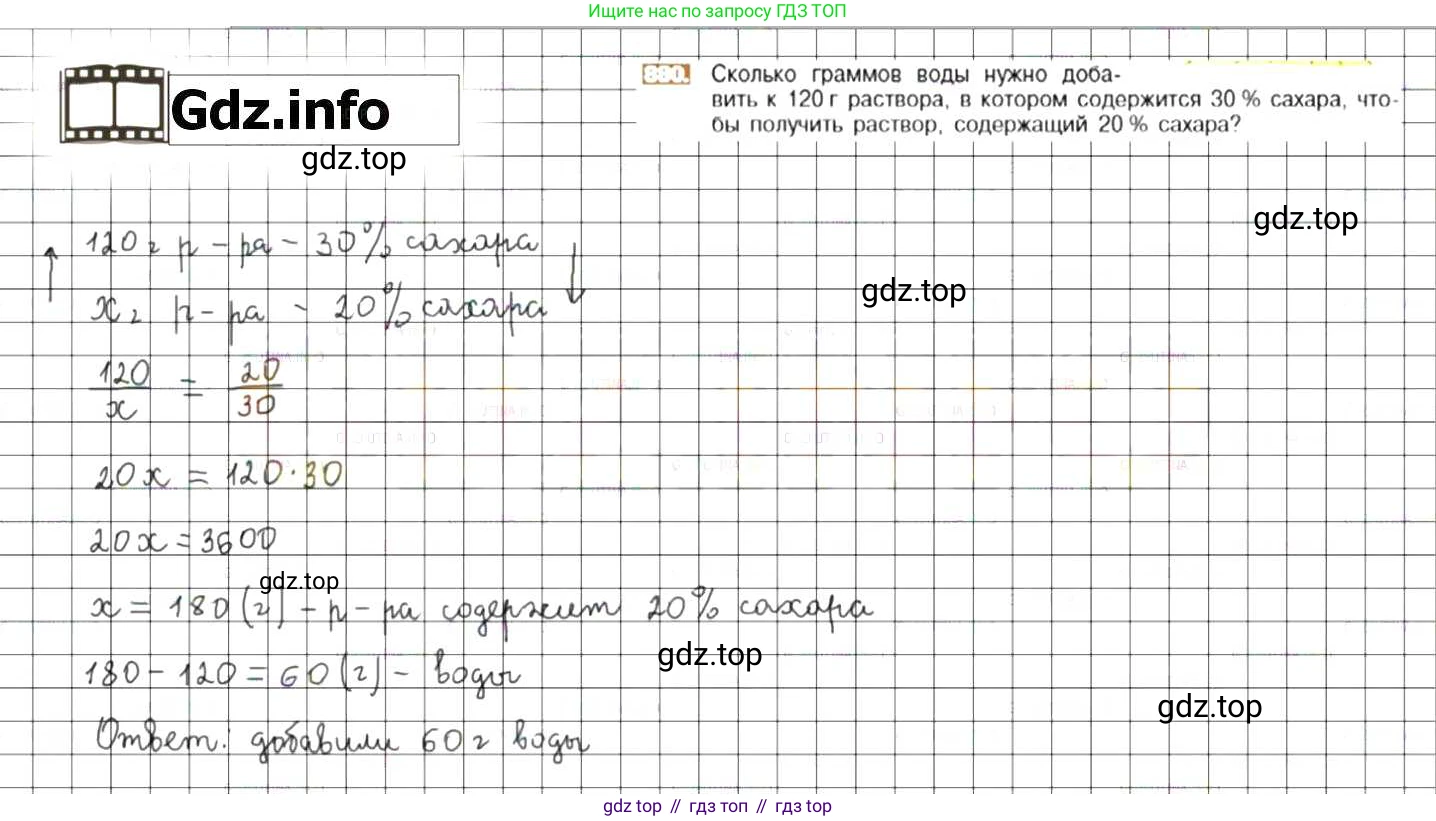 Ищите нас по запросу ГДЗ ТОП
Gdz.info
gdz.top
Сколько граммов воды нужно доба-
вить к 120 г раствора, в котором содержится 30 % сахара, что-
бы получить раствор, содержащий 20 % сахара?
gdz.top
120 г р-ра - 30% сахара
gdz.top
x г р-ра - 20% сахара
120/x = 20/30
20x = 120·30
20x = 3600
gdz.top
x = 180 (г) - р-ра содержит 20% сахара
gdz.top
180 - 120 = 60 (г) - воды
gdz.top
Ответ: добавили 60 г воды
gdz top // гдз топ // gdz top